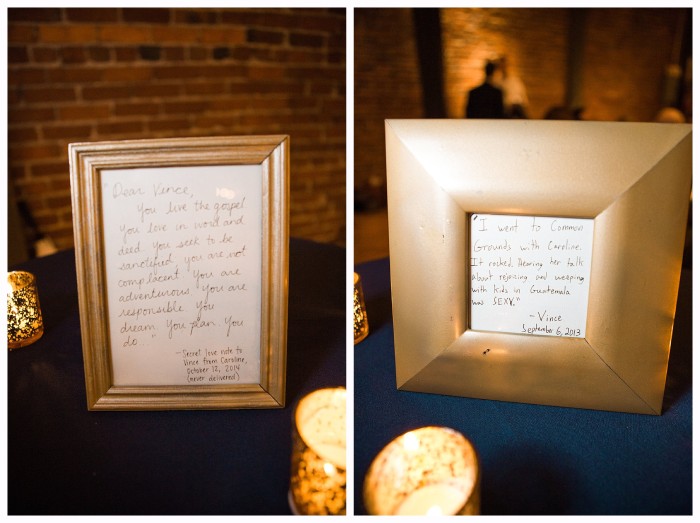 "Dear Vince,
You live the gospel
you live in word and
deed you seek to be
sanctified you are not
complacent you are
adventurous you are
responsible you
dream. you plan. you
do..."
-Secret love note to
Vince from Caroline,
October 12, 2014
(never delivered)
"I went to Common
Grounds with Caroline.
It rocked. Hearing her talk
about rejoicing and weeping
with kids in Guatemala
was SEXY."
-Vince
September 6, 2013